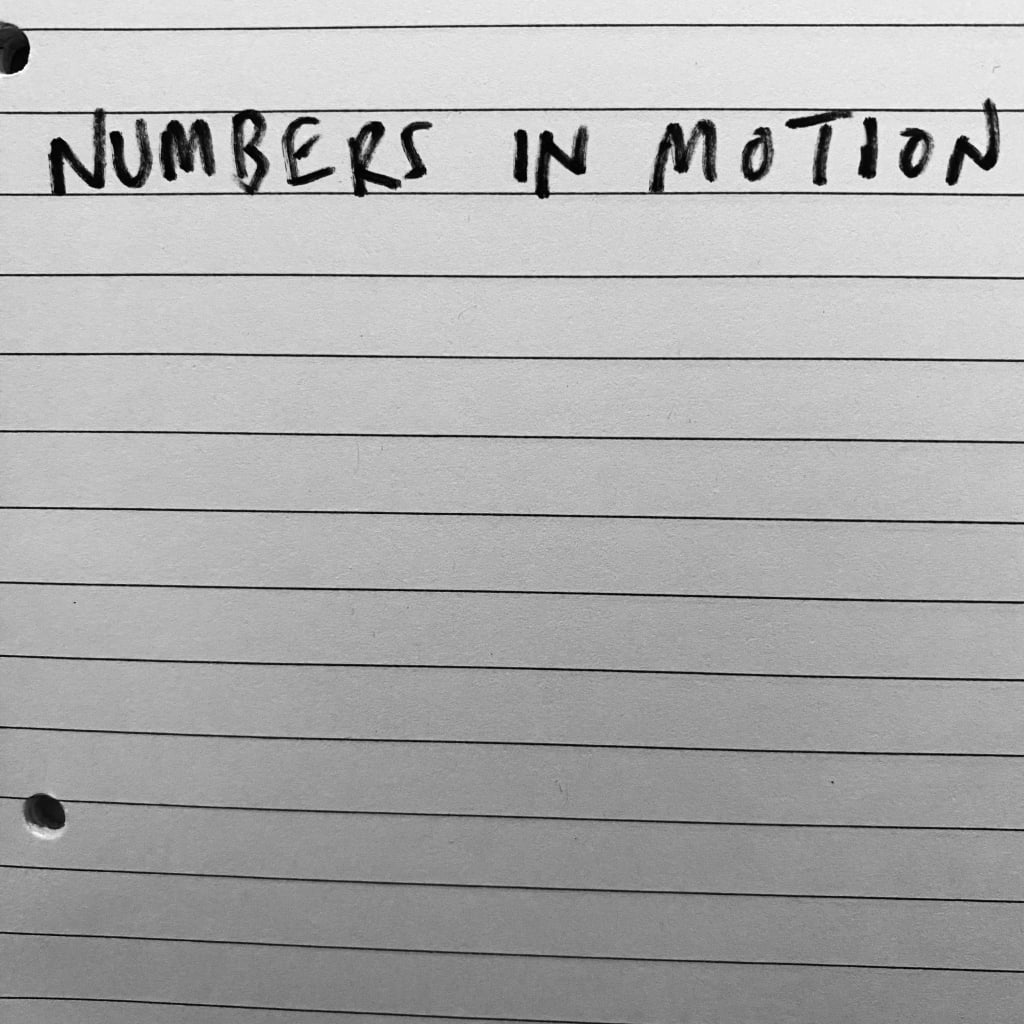 NUMBERS IN MOTION